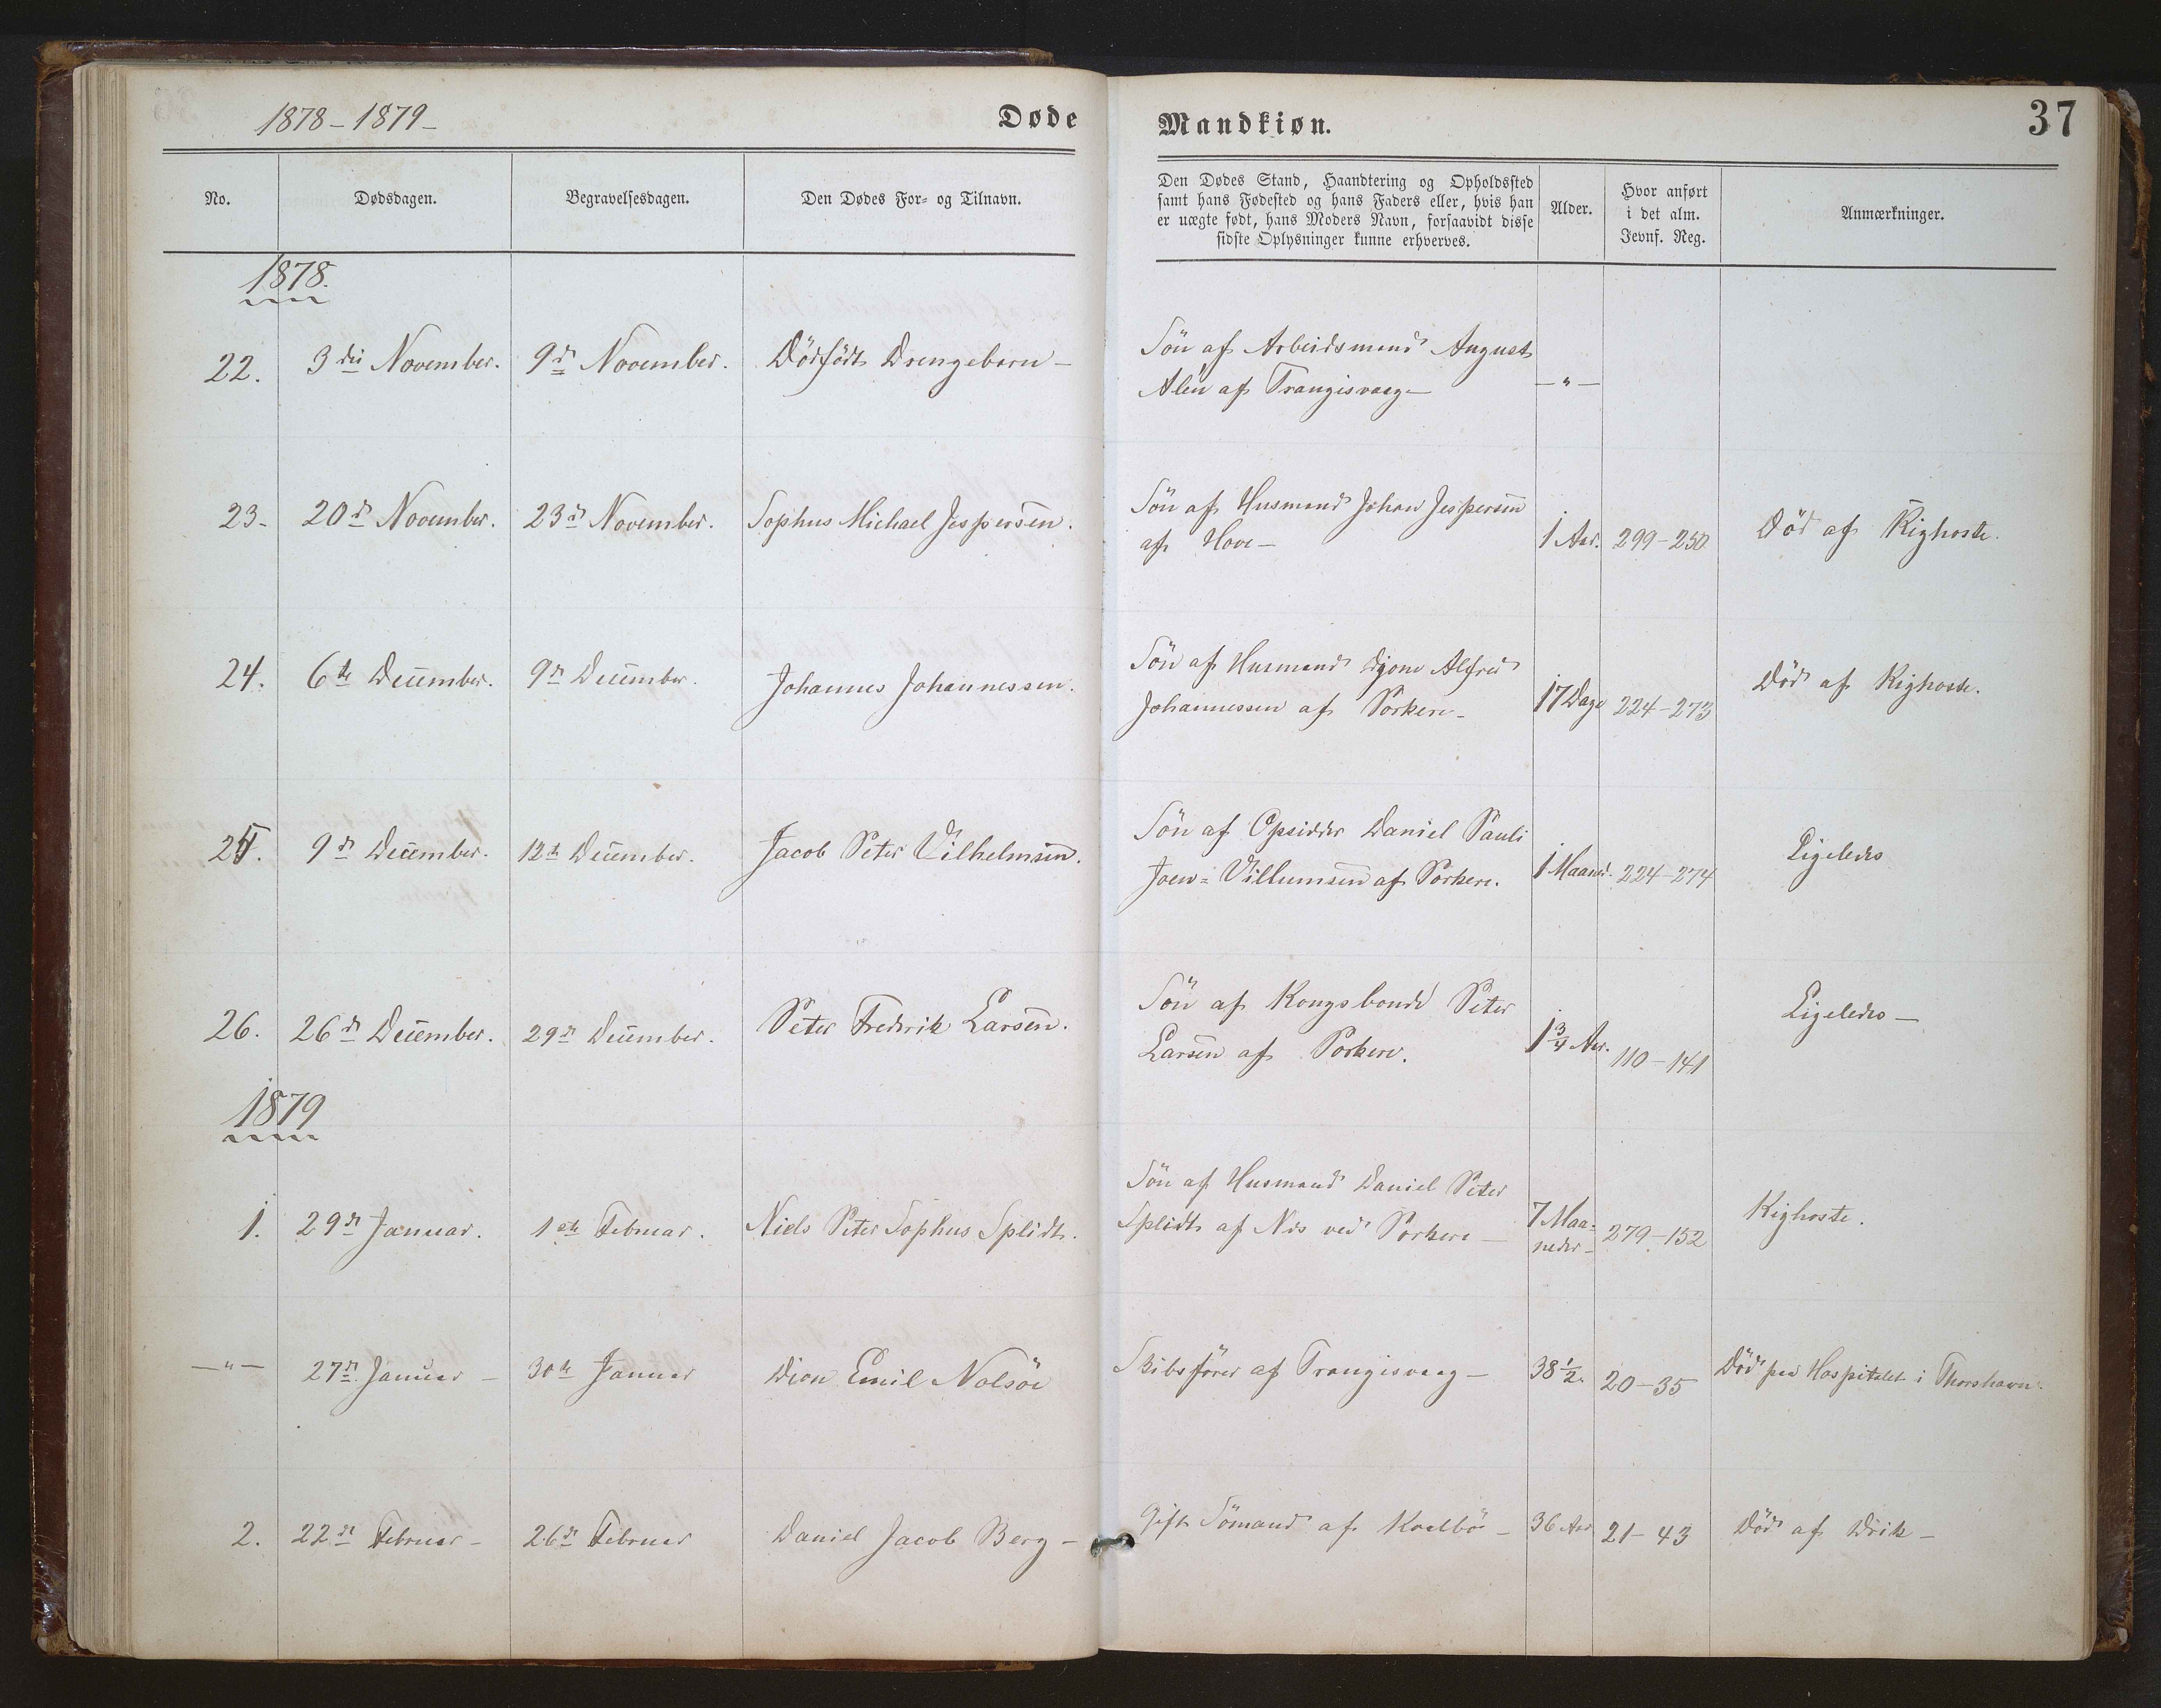 1878-1879-
Døde
Mandkiøn.
37
No.
Dødsdagen.
Begravelsesdagen.
Den Dødes For- og Tilnavn.
Den Dødes Stand, Haandtering og Opholdssted
samt hans Fødested og hans Faders eller, hvis han
er uægte født, hans Moders Navn, forsaavidt disse
sidste Oplysninger kunne erhverves.
Alder.
Hvor anført
i det alm.
Jevnf. Reg.
Anmærkninger.
1878.
22. 3die November. 9de November. Dödfödt Drengebarn -
Sön af Arbeidsmand August
af Trangisvaag -
- " -
23. 20de November. 23de November. Sophus Michael Jespersen.
Sön af Husmand Johan Jespersen
af Hove -
1 Aar. 299-250 Död af Kighoste.
24. 6te December. 9de December. Johannes Johannessen.
Sön af Husmand Djone Alfred
Johannessen af Porkere -
17 Dage 224-273 Död af Kighoste.
25. 9de December. 12te December. Jacob Peter Vilhelmsen.
Sön af Opsidder Daniel Pauli
Joen= Villumsen af Porkere.
1 Maaned. 224-274 Ligeledes
26. 26de December. 29de December. Peter Fredrik Larsen.
Sön af Kongsbonde Peter
Larsen af Porkere.
1 3/4 Aar. 110-141 Ligeledes -
1879
1. 29de Januar. 1ste Februar. Niels Peter Sophus Splidt.
Sön af Husmand Daniel Peter
Splidt af Nes ved Porkere -
7 Maa=
neder - 279-152 Kighoste.
- " - 27de Januar - 30te Januar Dion Emil Nolsöe
Skibsförer af Trangisvaag -
38 1/2. 20-35 Död paa Hospitalet i Thorshavn.
2. 22de Februar - 26de Februar Daniel Jacob Berg -
Gift Sömand af Kvalbö -
36 Aar 21-43 Död af Drik -